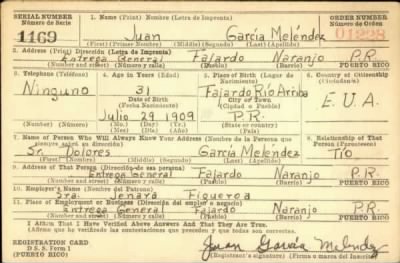 SERIAL NUMBER 1. Name (Print) Nombre (Letra de Imprenta) ORDER NUMBER
Número de Série Número de Orden
1169 Juan García Meléndez 01228
(First) (Primer Nombre) (Middle) (Segundo) (Last) (Apellido)
2. Address (Print) Dirección (Letra de Imprenta)
Entrega General Fajardo Naranjo P.R.
(Number and street) (Número y calle) (Town) (Pueblo) (Barrio) PUERTO RICO
3. Telephone (Teléfono) 4. Age in Years (Edad) 5. Place of Birth (Lugar de Nacimiento) 6. Country of Citizenship (Ciudadanía)
Ninguno 31 Fajardo Río Arriba E.U.A.
Date of Birth City or Town
(Fecha Nacimiento) (Ciudad o Pueblo)
Julio 29 1909 P.R.
(Mo.) (Day) (Yr.) State or country
(Mes) (Día) (Año) (Estado o país)
7. Name of Person Who Will Always Know Your Address (Nombre de la Persona que siempre sabrá su dirección) 8. Relationship of That Person (Parentesco)
Sr. Dolores García Meléndez Tío
(First) (Primer nombre) (Middle) (Segundo) (Last) (Apellido)
9. Address of That Person (Dirección de esa persona)
Entrega General Fajardo Naranjo P.R.
(Number and street) (Número y calle) (Town) (Pueblo) (Barrio) PUERTO RICO
10. Employer's Name (Nombre del Patrono)
Sra. Jenara Figueroa
11. Place of Employment or Business (Dirección del empleo o negocio)
Entrega General Fajardo Naranjo P.R.
(Number and street) (Número y calle) (Town) (Pueblo) (Barrio) PUERTO RICO
I Affirm That I Have Verified Above Answers and That They Are True.
(Afirmo que he verificado las contestaciones que preceden y que todas son correctas.
REGISTRATION CARD
D. S. S. Form 1
(PUERTO RICO)
Juan García Meléndez
(Registrant's signature) (Firma o marca del Inscrito)